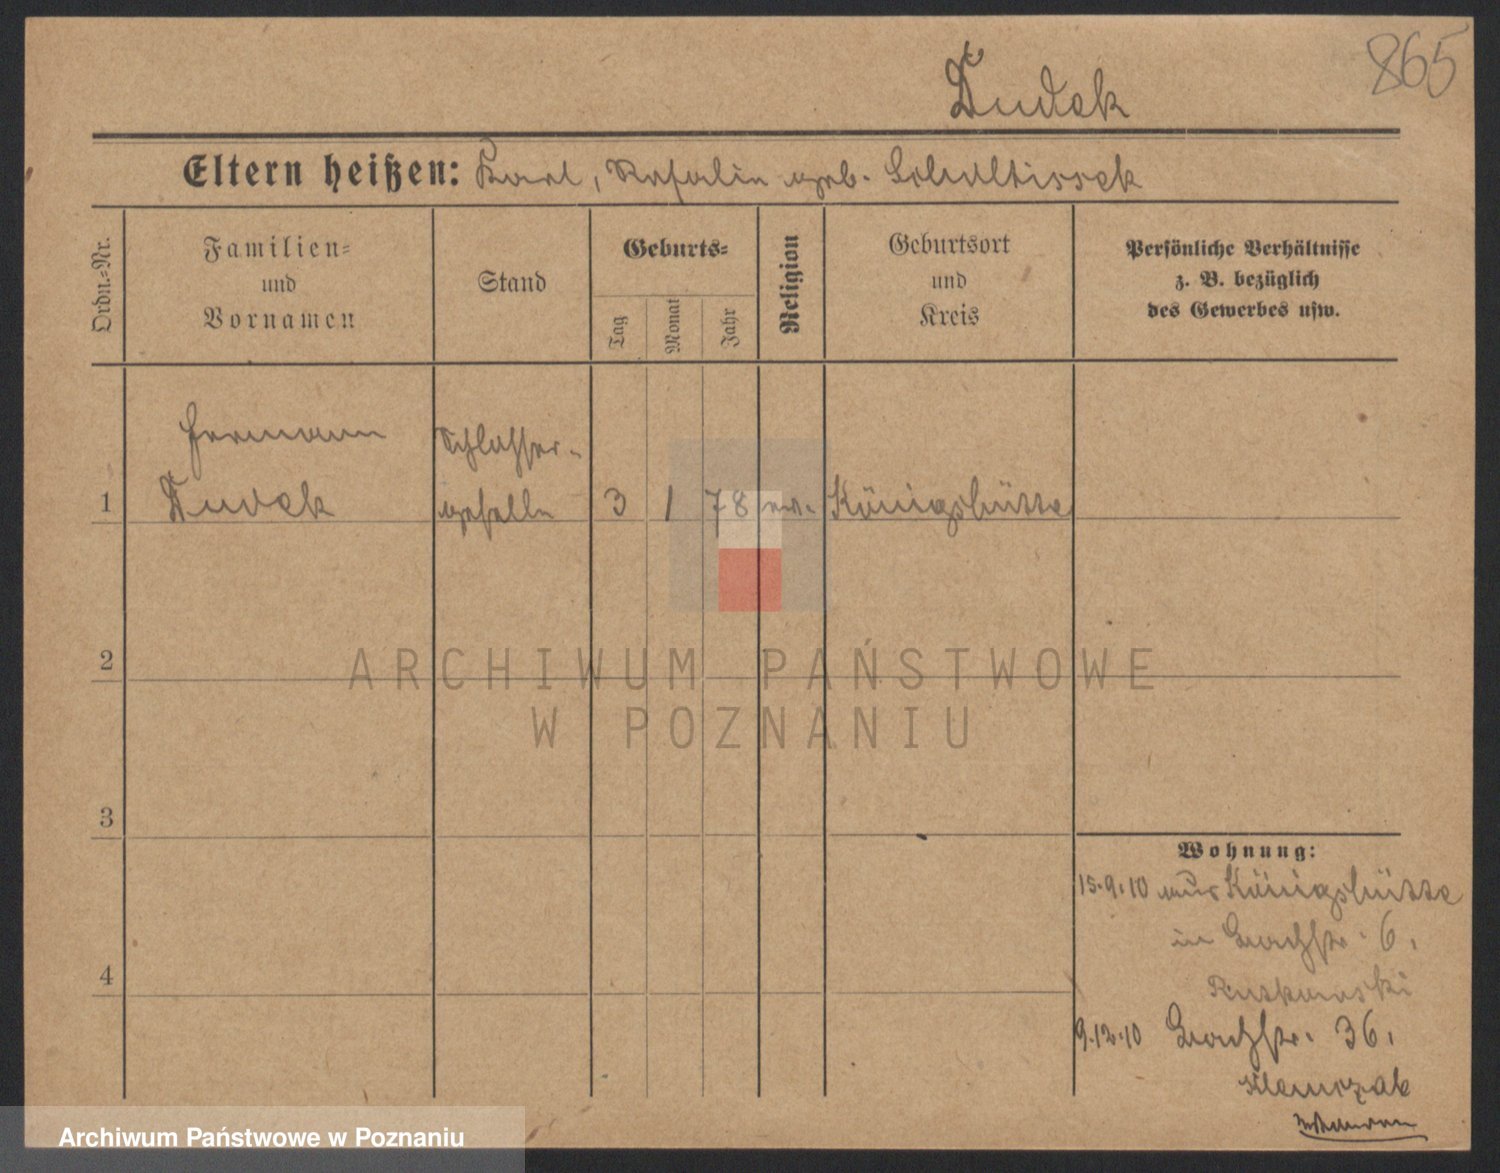 865
Dudek
Eltern heißen: Karl, Rosalie geb. Schultissek
Ordn.-Nr.
Familien-
und
Vornamen
Stand
Geburts-
Tag
Monat
Jahr
Religion
Geburtsort
und
Kreis
Persönliche Verhältnisse
z. B. bezüglich
des Gewerbes usw.
Hermann Schlosser-
1 Dudek geselle 3 1 78 ev. Königshütte
2
3
4
Wohnung:
15.9.10 aus Königshütte
in Bachstr. 6.
Rutkowski
9.12.10 Bachstr. 36.
Klemczak
ARCHIWUM PAŃSTWOWE
W POZNANIU
Archiwum Państwowe w Poznaniu